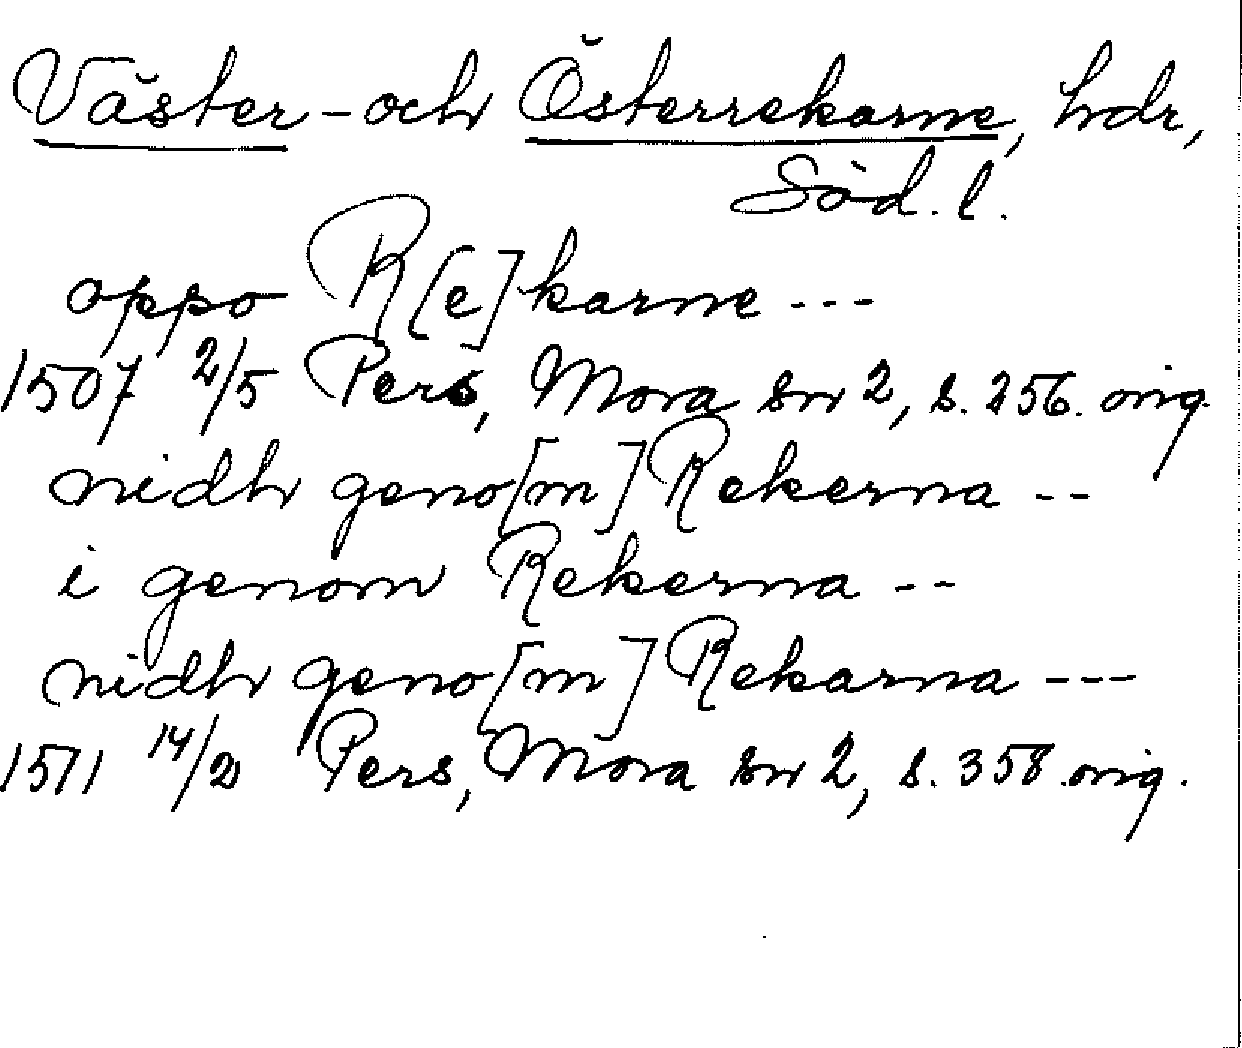 Väster- och Österrekarne, hdr,
Söd. l.
oppo R[e]karne ---
1507 2/5 Pers, Mora sn 2, s. 256. orig
nidh geno[m] Rekerna --
i genom Rekerna --
nidh geno[m] Rekarna ---
1511 14/2 Pers, Mora sn 2, s. 358. orig.